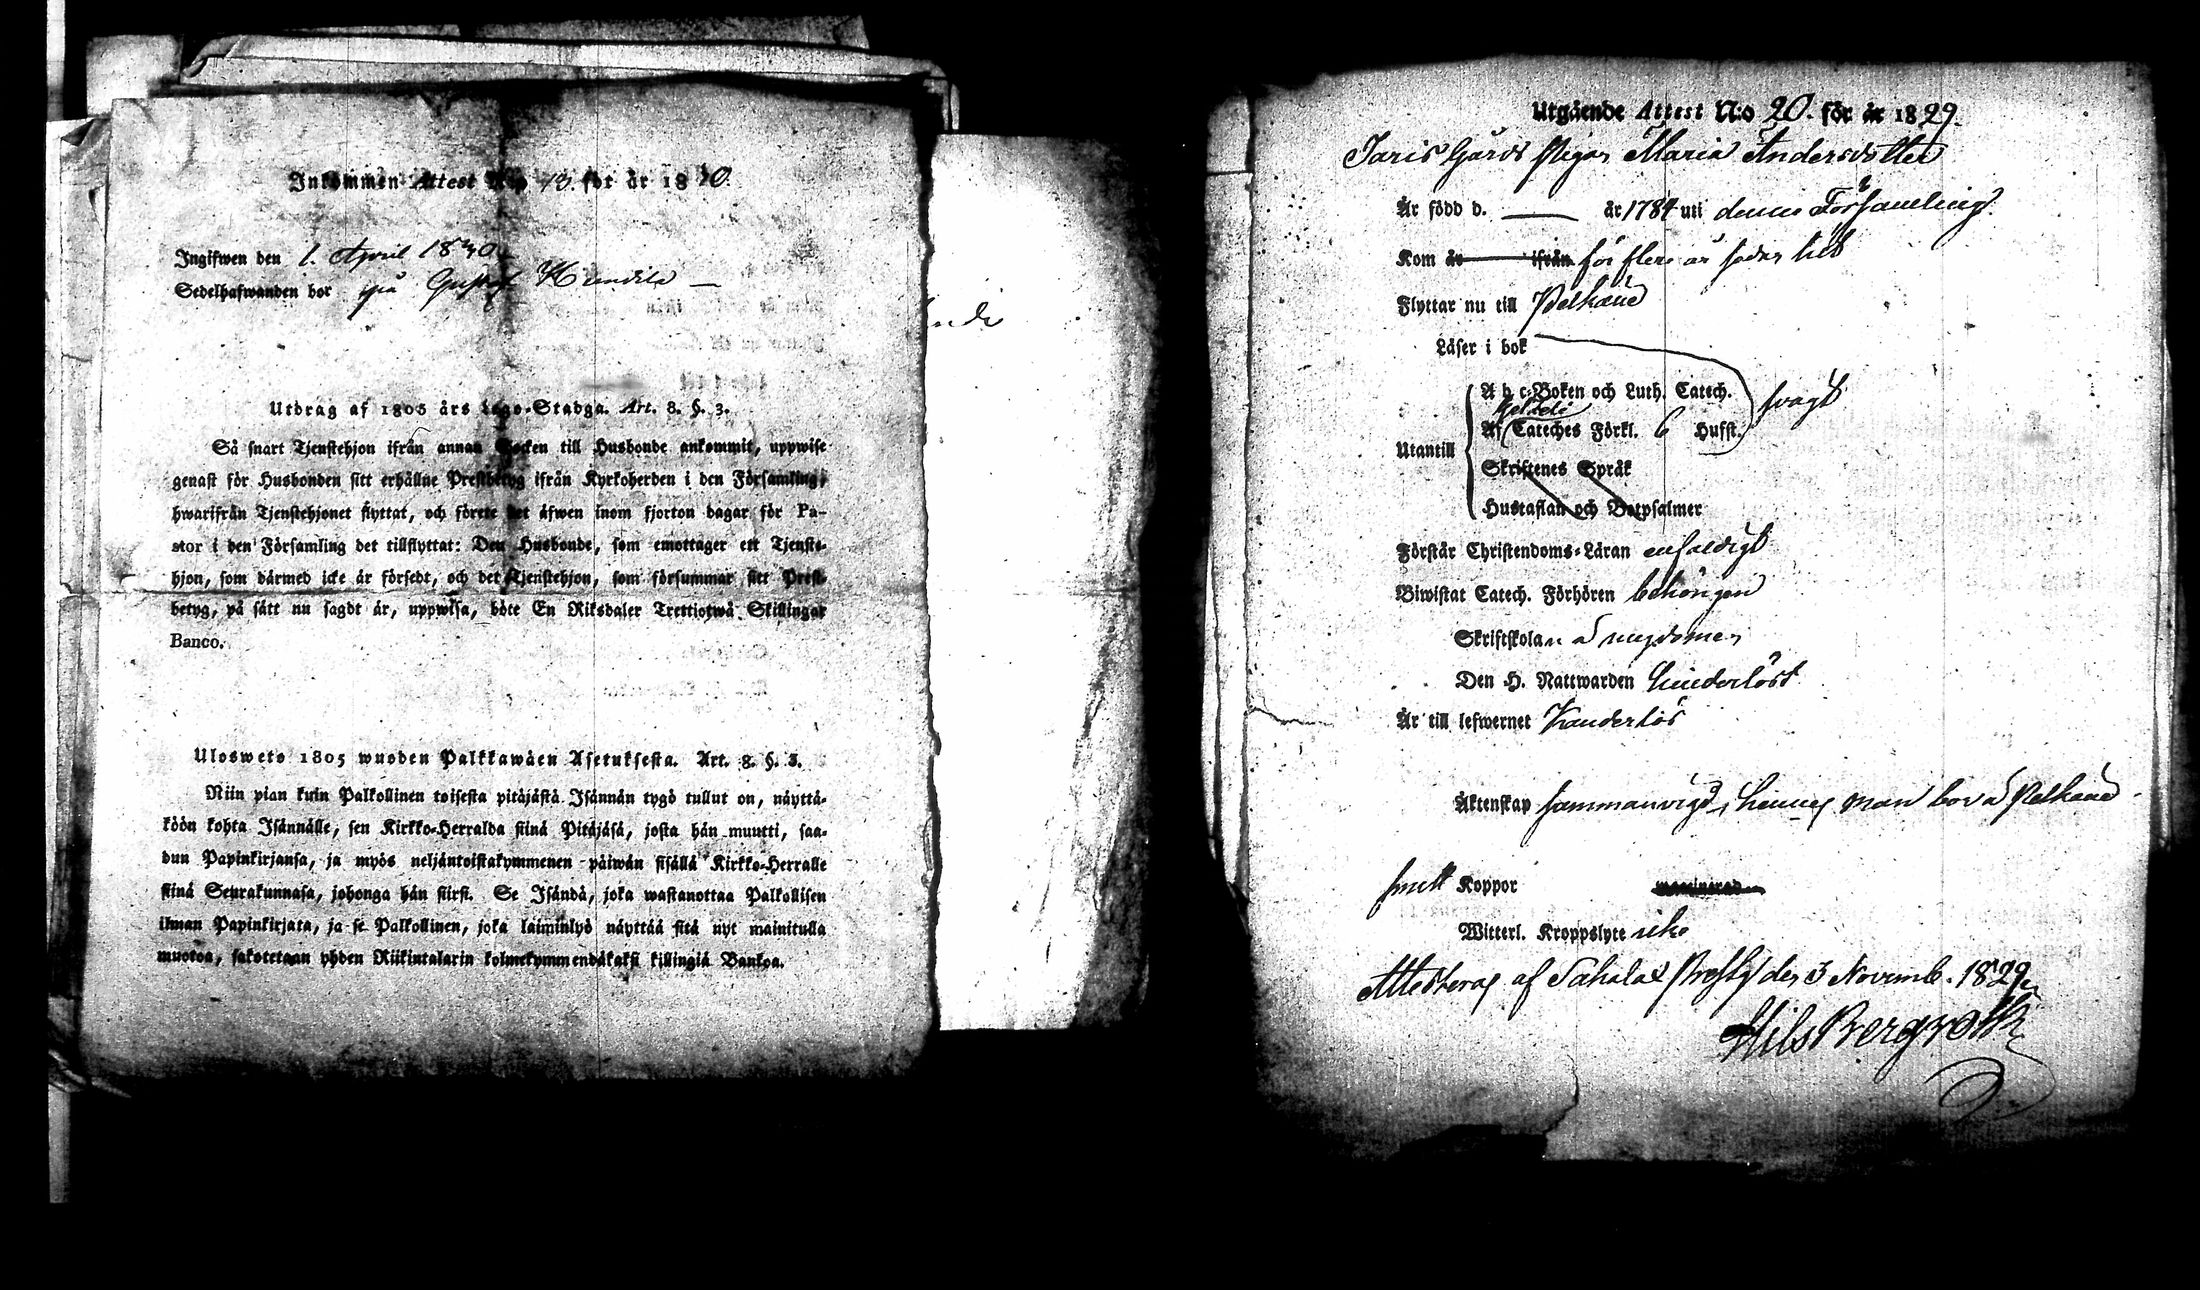 Inkommen Attest N:o 13. för år 1830.
Ingifwen den 1. April 1830
Sedelhafwanden bor på
Utdrag af 1805 års Lego-Stadga. Art. 8. §. 3.
Så snart Tjenstehjon ifrån annan Socken till Husbonde ankommit, uppwise
genast för Husbonden sitt erhållne Prestbetyg ifrån Kyrkoherden i den Församling,
hwarifrån Tjenstehjonet flyttat, och förete det äfwen inom fjorton dagar för Pa-
stor i den Församling det tillflyttat: Den Husbonde, som emottager ett Tjenste-
hjon, som därmed icke är försedt, och det Tjenstehjon, som försummar sitt Prest-
betyg, på sätt nu sagdt är, uppwisa, böte En Riksdaler Trettiotwå Skillingar
Banco.
Ulosweto 1805 wuoden Palkkawäen Asetuksesta. Art. 8. §. 3.
Niin pian kuin Palkollinen toisesta pitäjästä Isännän tygö tullut on, näyttä-
köön kohta Isännälle, sen Kirkko-Herralda siinä Pitäjäsä, josta hän muutti, saa-
dun Papinkirjansa, ja myös neljäntoistakymmenen päiwän sisällä Kirkko-Herralle
siinä Seurakunnasa, johonga hän siirsi. Se Isändä, joka wastanottaa Palkollisen
ilman Papinkirjata, ja se Palkollinen, joka laiminlyö näyttää sitä nyt mainitulla
muotoa, sakotetaan yhden Riikintalarin kolmekymmendäkaksi killingiä Bankoa.
Utgående Attest N:o 20. för år 1829.
Jaris Gårds Pigan Maria Andersdotter
Är född d. år 1784 uti denna Församling.
Kom år ifrån för flere år sedan hit
Flyttar nu till Pelkäne
Läser i bok
A b c-Boken och Luth. Catech. svagt
Utantill Af Cateches Förkl. 6 Hufst.
Skriftenes Språk
Hustaflan och Botpsalmer
Förstår Christendoms-Läran enfaldigt
Biwistat Catech. Förhören behörigen
Skriftskolan i ungdomen
Den H. Nattwarden hinderlöst
Är till lefwernet klanderlös
Äktenskap sammanvigd, hennes man bor i Pelkäne
haft Koppor
Witterl. Kroppslyte icke
Attesteras af Sahalax Prestg. den 3 Novemb. 1829.
Nils Bergroth